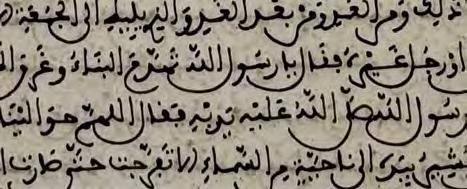 ذلك ومن الغد ومن بعد الغد والذي يليه الى الجمعة
او رجل غيره فقال يا رسول الله تهدم البناء وغرق
رسول الله صلى الله عليه يديه فقال اللهم حوالينا
يشير بيده الى ناحية من السماء الا تفرجت حتى صارت